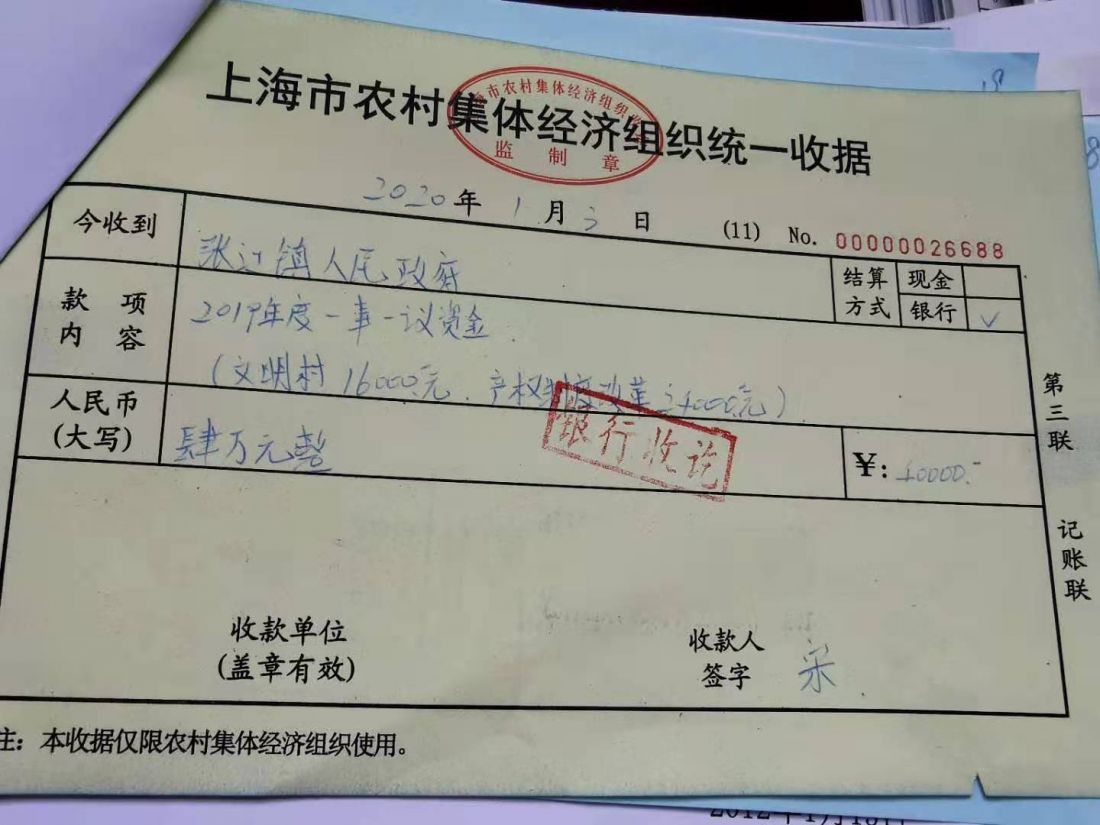 上海市农村集体经济组织统一收据
市农村集体经济组织
监制章
2020年1月3日 (11) No. 00000026688
今收到 张江镇人民政府
结算方式 现金
银行 ✓
款项内容 2019年度一事一议资金
(文明村16000元、产权制度改革24000元)
人民币(大写) 肆万元整 ¥: 40000.-
银行收讫
第三联
记账联
收款单位
(盖章有效)
收款人
签字
宋
注: 本收据仅限农村集体经济组织使用。